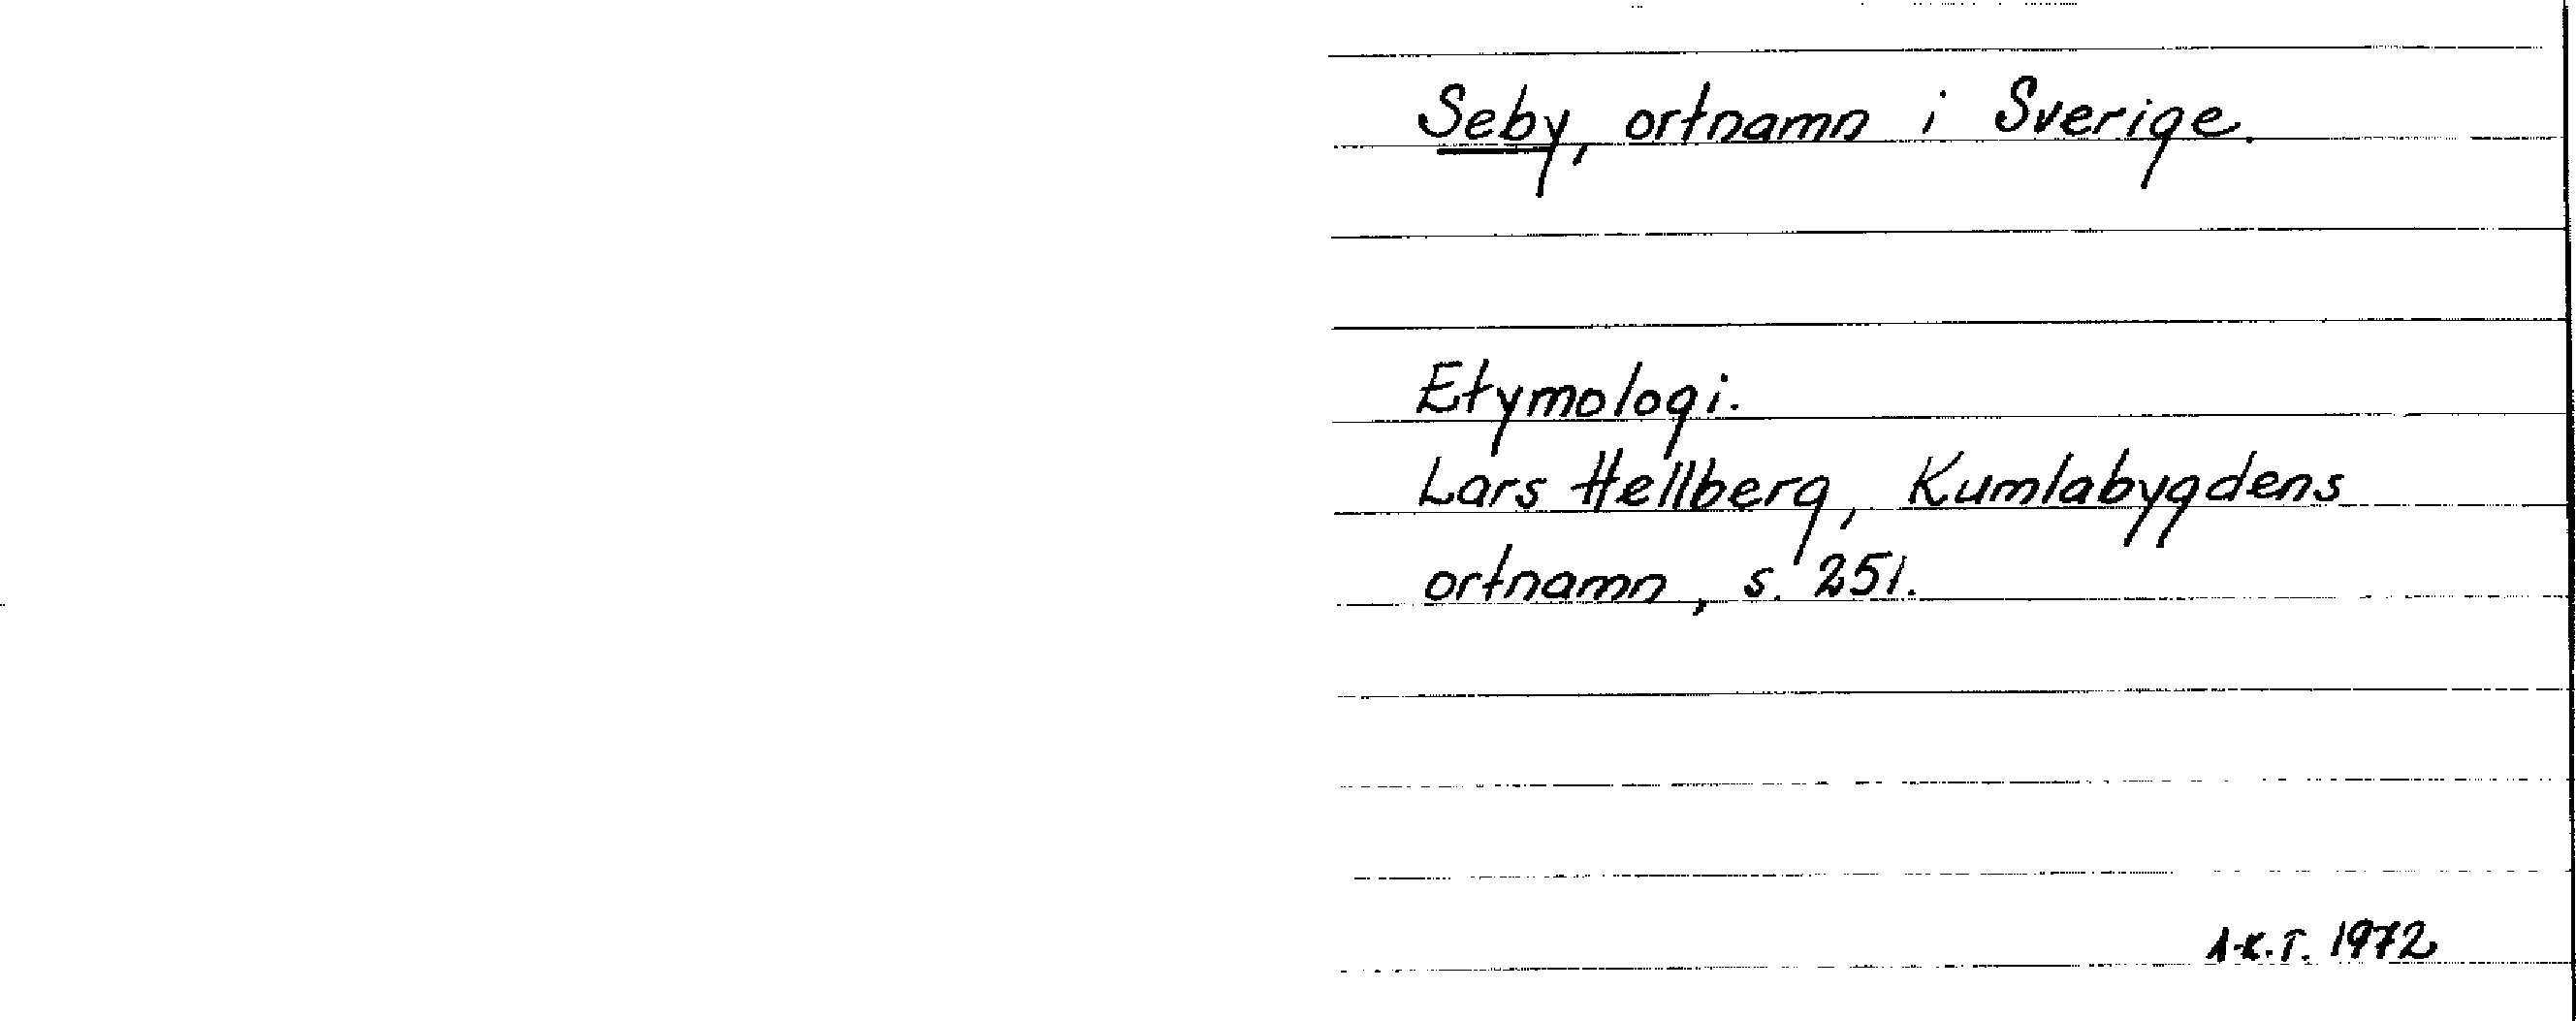 Seby, ortnamn i Sverige.
Etymologi.
Lars Hellberg, Kumlabygdens
ortnamn, s. 251.
A-K.T. 1972